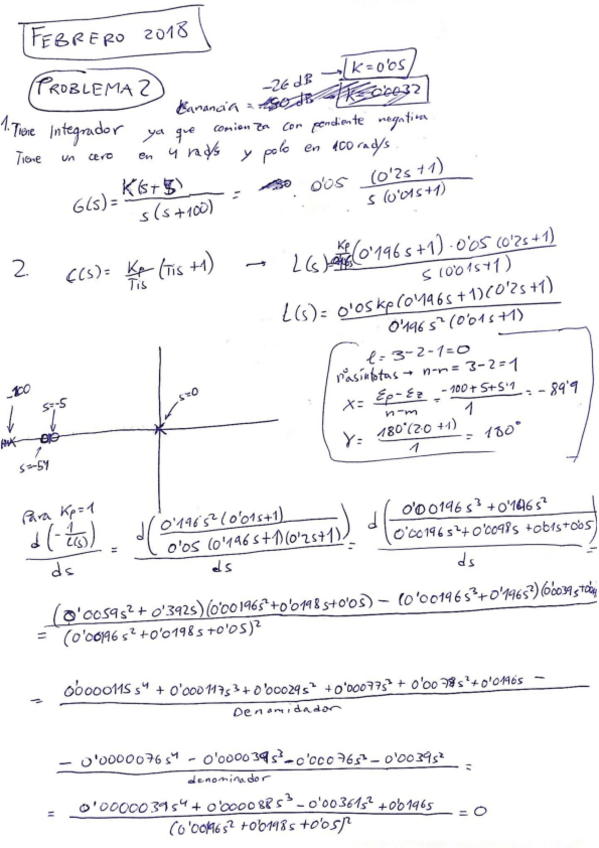 FEBRERO 2018
PROBLEMA 2
Ganancia = -26 dB → K=0'05
1. Tiene Integrador ya que comienza con pendiente negativa
Tiene un cero en 4 rad/s y polo en 100 rad/s.
G(s) = K(s+5) / s(s+100) = 0'05 (0'2s+1) / s(0'01s+1)
2. C(s) = Kp/Tis (Tis+1) → L(s) = Kp (0'196s+1)·0'05(0'2s+1) / s(0'01s+1)
L(s) = 0'05Kp(0'196s+1)(0'2s+1) / 0'196s²(0'01s+1)
l = 3-2-1=0
nºasíntotas → n-m = 3-2=1
X = (Σp-Σz)/(n-m) = (-100+5+5'1)/1 = -89'9
γ = 180°(2·0+1)/1 = 180°
-100
s=-5
s=0
s=-5'1
Para Kp=1
d(-1/L(s))/ds = d(0'196s²(0'01s+1) / 0'05(0'196s+1)(0'2s+1))/ds = d(0'00196s³+0'196s² / 0'00196s²+0'0098s+0'01s+0'05)/ds =
= (0'0059s²+0'392s)(0'00196s²+0'0198s+0'05) - (0'00196s³+0'196s²)(0'0039s+0'0 / (0'00196s²+0'0198s+0'05)²
= 0'0000115s⁴ + 0'000117s³+0'00029s² + 0'00077s³ + 0'0078s²+0'0196s - / Denomidador
- 0'0000076s⁴ - 0'000039s³ - 0'00076s³ - 0'0039s² / denominador =
= 0'0000039s⁴ + 0'000088s³ - 0'00361s² + 0'0196s / (0'00196s² + 0'0198s + 0'05)² = 0